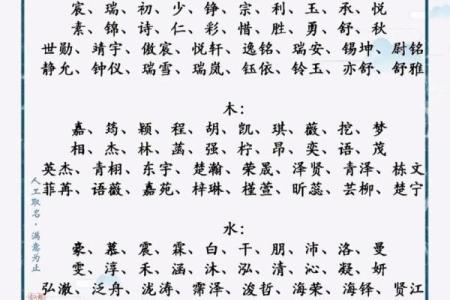 宸、瑞、初、少、铮、宗、利、玉、承、悦
素、锦、诗、仁、彩、惜、胜、勇、舒、秋
世勋、靖宇、傲宸、悦轩、逸铭、瑞安、锡坤、尉铭
静允、钟仪、瑞雪、瑞岚、钰依、铃玉、亦舒、舒雅
木：
嘉、筠、颖、程、胡、凯、琪、薇、挖、梦
相、杰、林、菡、强、柠、昂、奕、语、茂
英杰、青栩、东宇、楚瀚、荣晟、泽贤、青泽、栋文
菲苒、语薇、嘉苑、梓琳、槿萱、昕蕊、芸柳、楚宁
水：
豪、慕、震、霖、白、干、朋、沛、洛、曼
雯、淳、禾、涵、沐、泓、清、沁、凝、妍
弘澈、泛舟、泷涛、霈泽、浚哲、海荣、海铎、贤江
人工取名·满意为止